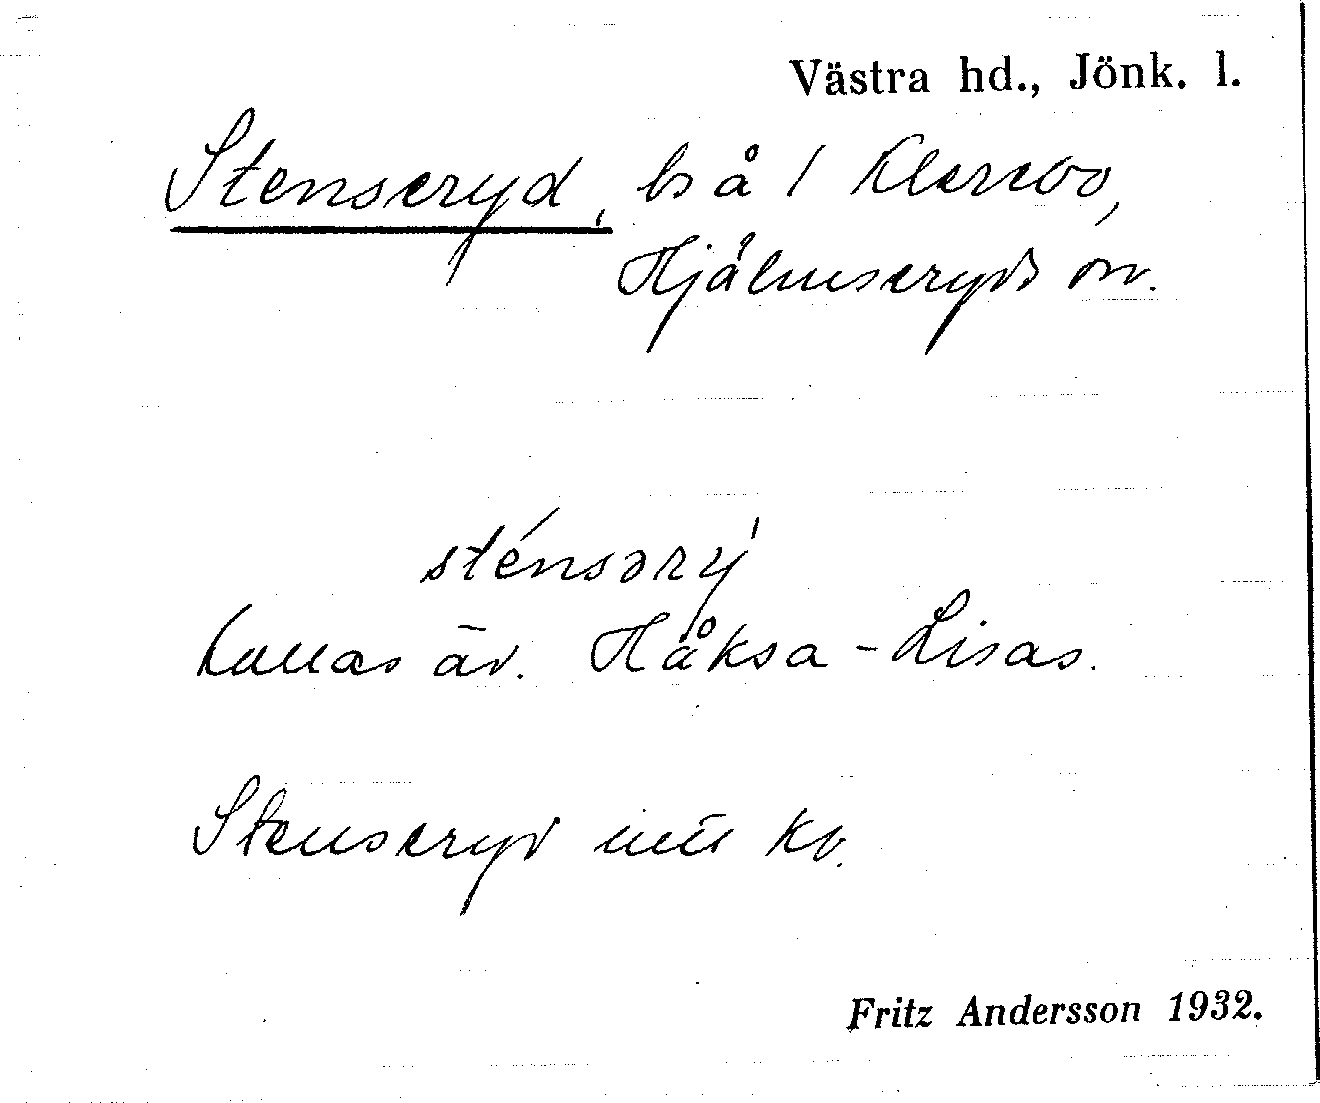 Västra hd., Jönk. l.
Stenseryd, bs å / Klerebo,
Hjälmseryds sn.
sténsərý
kallas äv. Håksa-Lisas.
Stenseryd
Fritz Andersson 1932.